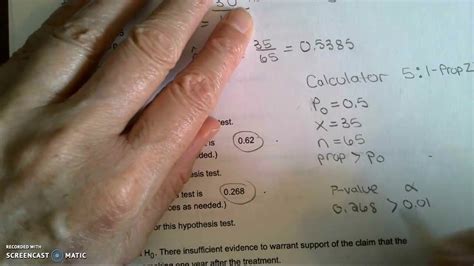 30
=
35
65
= 0.5385
Calculator 5:1-PropZ
P₀ = 0.5
x = 35
n = 65
prop > P₀
test.
is 0.62
ded.)
esis test.
test is 0.268
ces as needed.)
or this hypothesis test.
P-value α
0.268 > 0.01
H₀. There insufficient evidence to warrant support of the claim that the
king one year after the treatment.
RECORDED WITH
SCREENCAST MATIC